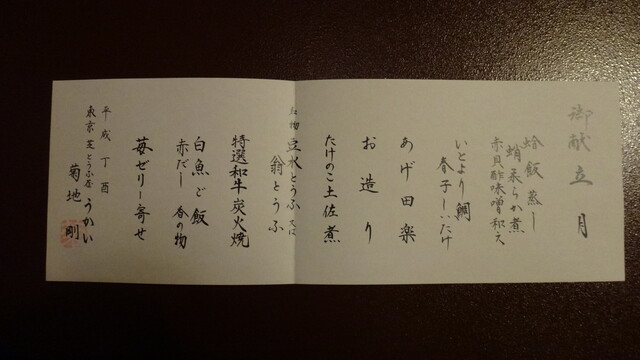 御献立 月
蛤飯蒸し
蛸柔らか煮
赤貝酢味噌和え
いとより鯛
春子しいたけ
あげ田楽
お造り
たけのこ土佐煮
豆水とうふ 又は
翁とうふ
特選和牛炭火焼
白魚ご飯
赤だし 香の物
苺ゼリー寄せ
平成丁酉
東京 芝 とうふ屋 うかい
菊地 剛